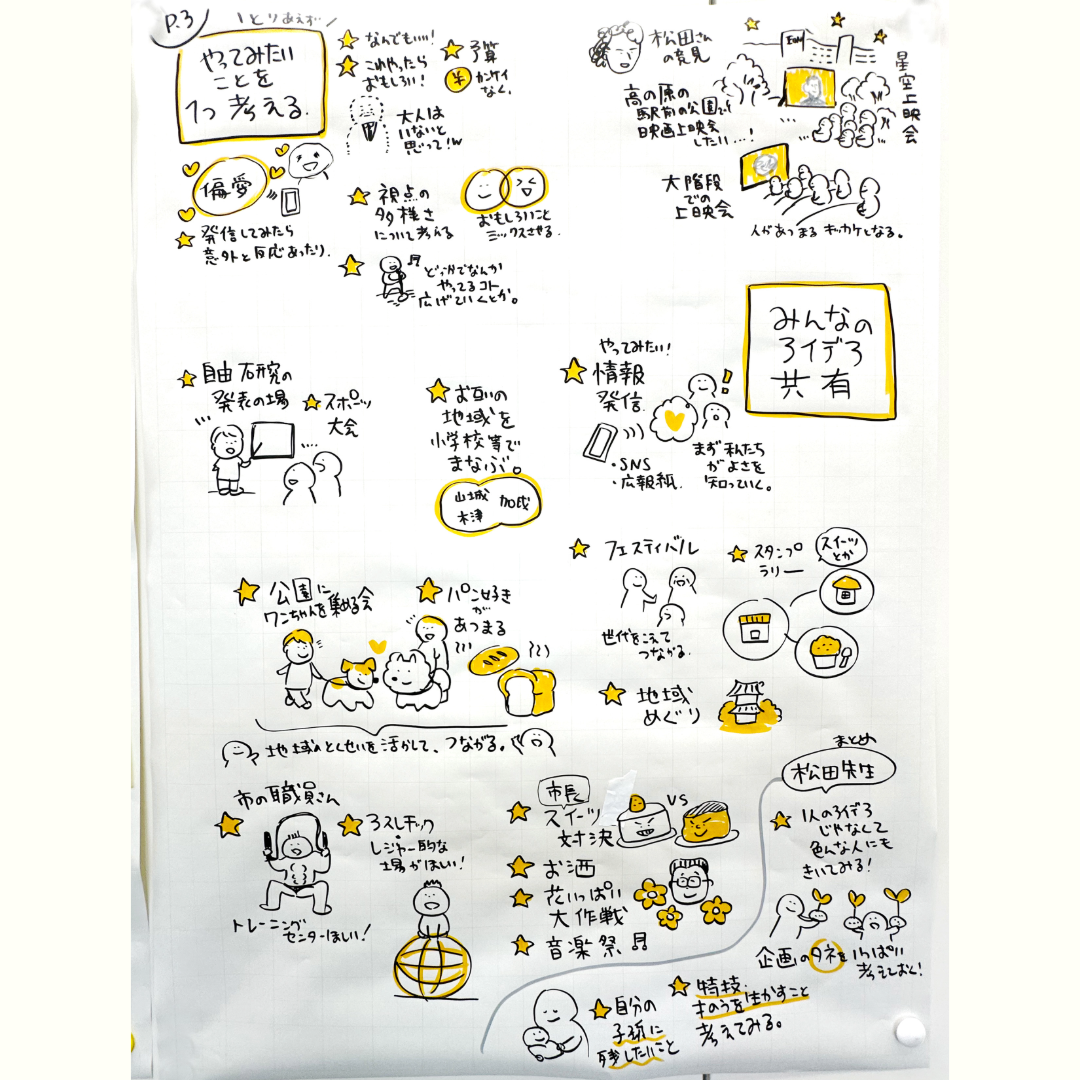 P.3
\とりあえず/
やってみたい
ことを
1つ考える.
なんでもいい!
これやったら
おもしろい!
予算
¥
カンケイ
なく.
大人は
いないと
思って!w
偏愛
発信してみたら
意外と反応あったり.
視点の
多様さ
について考える
おもしろいこと
ミックスさせる.
どっかでなんか
やってるコト
広げていくとか。
松田さん
の意見
高の原の
駅前の公園で
映画上映会
したい…!
星空上映会
大階段
での
上映会
人があつまるキッカケとなる。
みんなの
アイデア
共有
自由研究の
発表の場
スポーツ
大会
お互いの
地域を
小学校等で
まなぶ
山城
木津
加茂
やってみたい!
情報
発信.
・SNS
・広報紙.
まず私たち
がよさを
知っていく。
公園に
ワンちゃんを集める会
パン好き
が
あつまる
地域のとくせいを活かして、つながる。
フェスティバル
世代をこえて
つながる.
スタンプ
ラリー
スイーツ
とか
地域
めぐり
市の職員さん
トレーニング
センターほしい!
アスレチック
レジャー的な
場がほしい!
市長
スイーツ
対決
VS
お酒
花いっぱい
大作戦
音楽祭
まとめ
松田先生
1人のアイデア
じゃなくて
色んな人にも
きいてみる!
企画のタネをいっぱい
考えておく!
特技.
さいのうを生かすこと
考えてみる。
自分の
子孫に
残したいこと